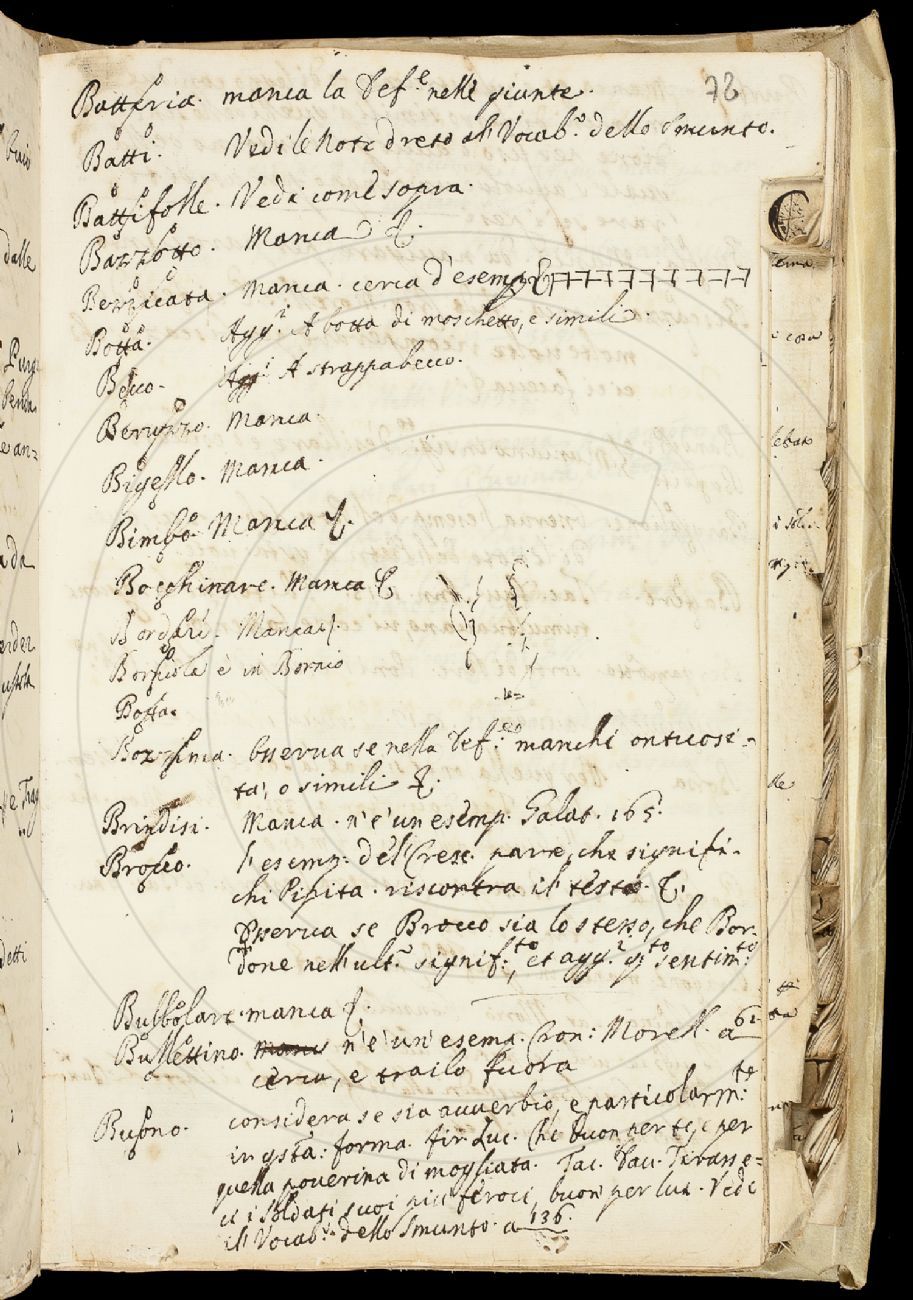 78
Batteria. manca la Def.e nelle giunte.
Batti. Vedi le Note dreto al Vocab.o dello Smunto.
Battifolle. Vedi come sopra.
Bazzotto. Manca
Berzicata. manca. cerca d'esemp.
Botta. Agg.i A botta di moschetto, e simili.
Becco. Agg.i A strappabecco.
Beruzzo. Manca.
Bigello. Manca.
Bimbo. Manca
Bocchinare. Manca
Manca
è in Bornio
Botta.
Bozzima. Osserua se nella Def.ne manchi ontuosi-
ta', o simili
Brindisi. Manca. n'e' un esemp. Galat. 165.
Brocco. l'esemp. del Cresc. pare, che signifi-
chi Pipita. riscontra il testo.
Osserua se Brocco sia lo stesso, che Bor-
done nell'ult.o signif.to, et agg.i q.to sentim.to
Bubbolare. manca
Bullettino. n'e' un'esemp. Cron: Morell. a 62
cerca, e trailo fuora
Buono. considera se sia auuerbio, e particolarm.te
in q.sta forma. Fir. Luc. Che buon per te, e per
quella pouerina di mogliata. Tac. Dau.
i soldati suoi piu feroci, buon per lui. Vedi
il Vocab.o dello Smunto. a 136.
dalle
detti